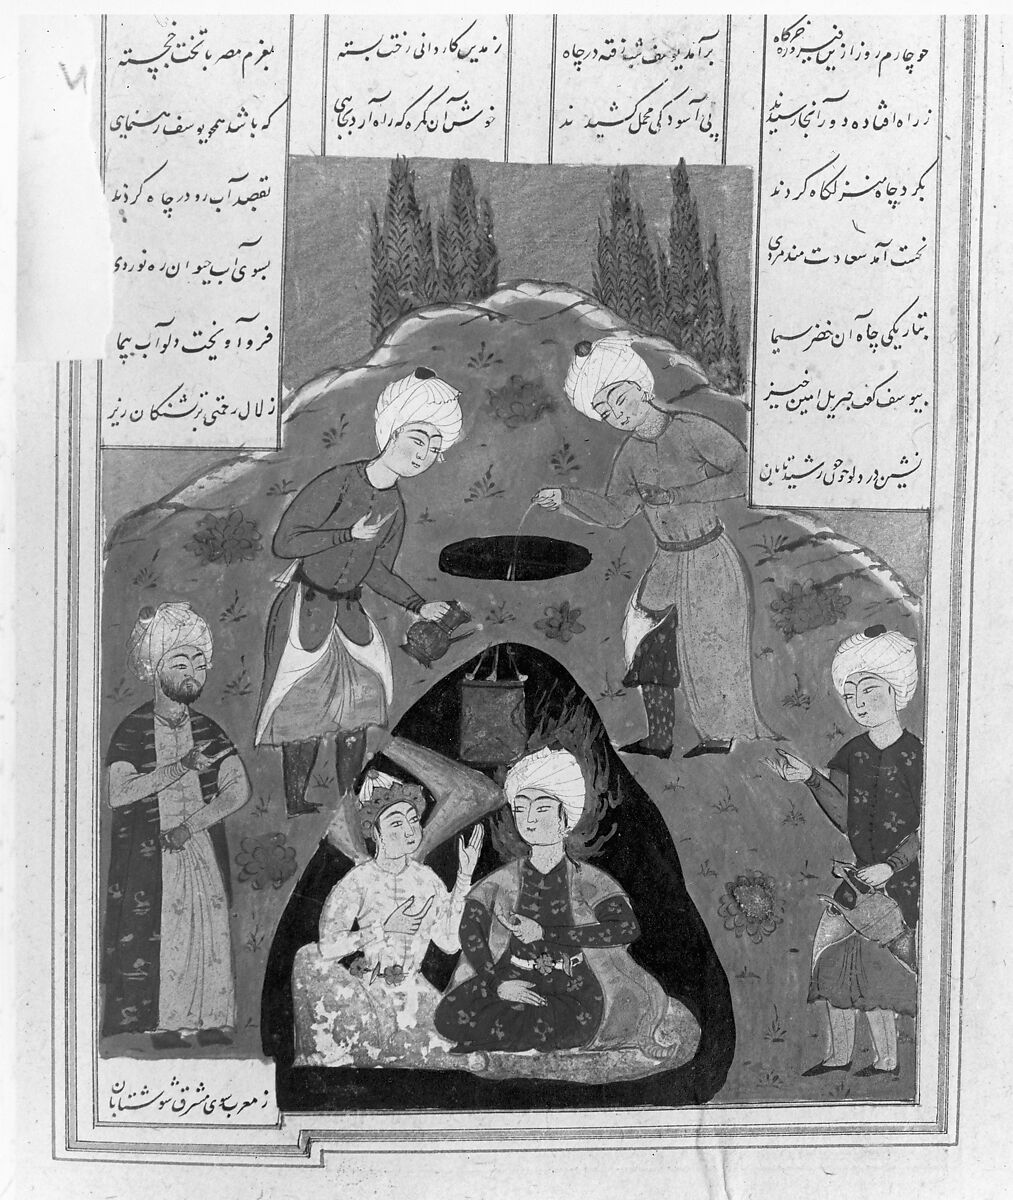 چو چارم روز ازین فیروزه خرگاه برآمد یوسف شب رفته در چاه ز مدین کاروانی رخت بسته بعزم مصر با تخت خجسته
ز راه افتاده دور آنجا رسیدند پی آسودگی محمل کشیدند خوش آن گمره که راه آرد بجایی که باشد همچو یوسف رهنمایی
بگرد چاه منزلگاه کردند بقصد آب رو در چاه کردند
نخست آمد سعادت مند مردی بسوی آب حیوان ره نوردی
بتاریکی چاه آن خضر سیما فرو آویخت دلو آب پیما
بیوسف گفت جبریل امین خیز زلال رحمتی بر تشنگان ریز
نشین در دلو چون خورشید تابان
ز مغرب سوی مشرق شو شتابان